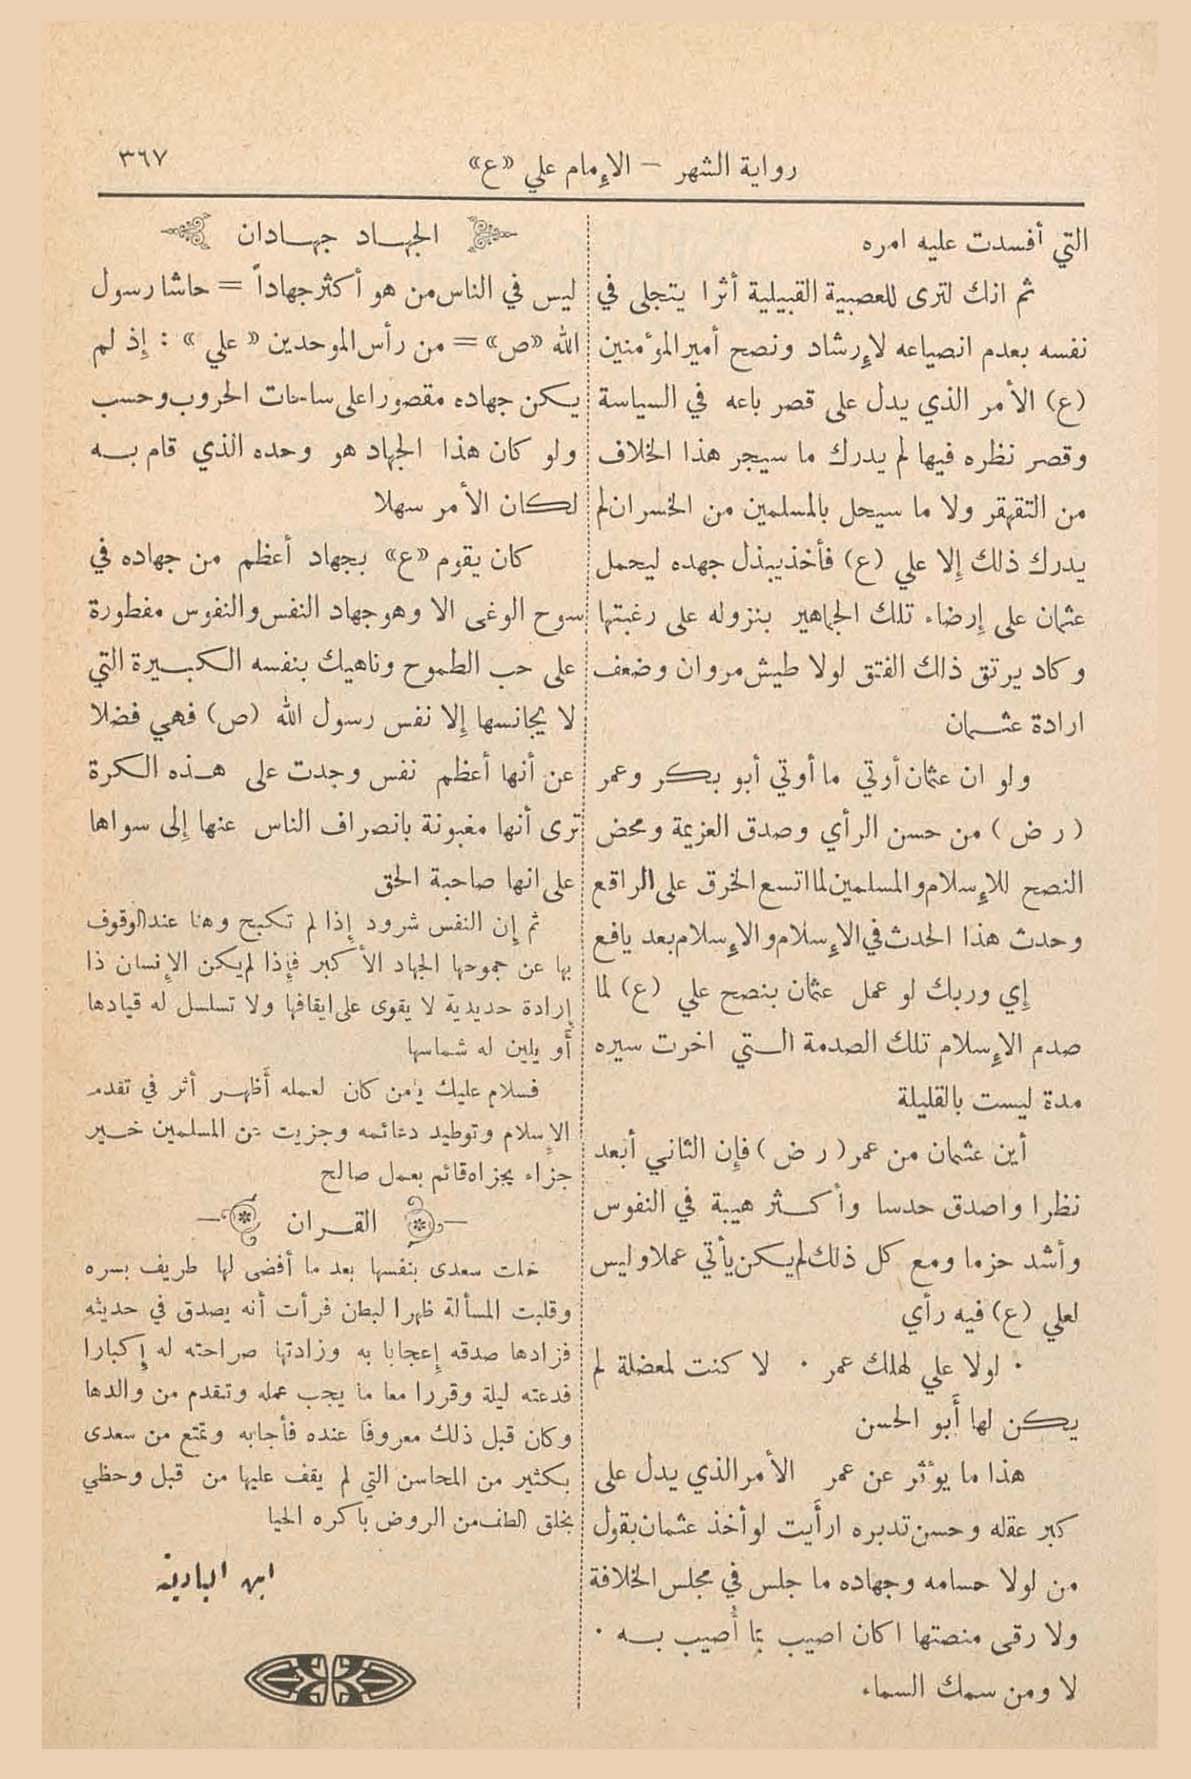 رواية الشهر – الإمام علي «ع»
٣٦٧
التي أفسدت عليه امره
ثم انك لترى للعصبية القبيلية أثرا يتجلى في
نفسه بعدم انصياعه لإرشاد ونصح أمير المؤمنين
(ع) الأمر الذي يدل على قصر باعه في السياسة
وقصر نظره فيها لم يدرك ما سيجر هذا الخلاف
من التقهقر ولا ما سيحل بالمسلمين من الخسران لم
يدرك ذلك إلا علي (ع) فأخذ يبذل جهده ليحمل
عثمان على إرضاء تلك الجماهير بنزوله على رغبتها
وكاد يرتق ذلك الفتق لولا طيش مروان وضعف
ارادة عثمان
ولو ان عثمان أوتي ما أوتي أبو بكر وعمر
(رض) من حسن الرأي وصدق العزيمة ومحض
النصح للإسلام والمسلمين لما اتسع الخرق على الراقع
وحدث هذا الحدث في الإسلام والإسلام بعد يافع
إي وربك لو عمل عثمان بنصح علي (ع) لما
صدم الإسلام تلك الصدمة التي اخرت سيره
مدة ليست بالقليلة
أين عثمان من عمر (رض) فإن الثاني أبعد
نظرا واصدق حدسا وأكثر هيبة في النفوس
وأشد حزما ومع كل ذلك لم يكن يأتي عملا وليس
لعلي (ع) فيه رأي
· لولا علي لهلك عمر · لا كنت لمعضلة لم
يكن لها أبو الحسن
هذا ما يؤثر عن عمر الأمر الذي يدل على
كبر عقله وحسن تدبره ارأيت لو أخذ عثمان بقول
من لولا حسامه وجهاده ما جلس في مجلس الخلافة
ولا رقى منصتها اكان اصيب بما أصيب به ·
لا ومن سمك السماء
الجهاد جهادان
ليس في الناس من هو أكثر جهاداً = حاشا رسول
الله «ص» = من رأس الموحدين «علي» : إذ لم
يكن جهاده مقصورا على ساحات الحروب وحسب
ولو كان هذا الجهاد هو وحده الذي قام به
لكان الأمر سهلا
كان يقوم «ع» بجهاد أعظم من جهاده في
سوح الوغى الا وهو جهاد النفس والنفوس مفطورة
على حب الطموح وناهيك بنفسه الكبيرة التي
لا يجانسها إلا نفس رسول الله (ص) فهي فضلا
عن أنها أعظم نفس وجدت على هذه الكرة
ترى أنها مغبونة بانصراف الناس عنها إلى سواها
على انها صاحبة الحق
ثم إن النفس شرود إذا لم تكبح وهنا عند الوقوف
بها عن جموحها الجهاد الأكبر فإذا لم يكن الإنسان ذا
إرادة حديدية لا يقوى على ايقافها ولا تسلسل له قيادها
أو يلين له شماسها
فسلام عليك يا من كان لعمله أظهر أثر في تقدم
الإسلام وتوطيد دعائمه وجزيت عن المسلمين خير
جزاء يجزاه قائم بعمل صالح
القران
خلت سعدى بنفسها بعد ما أفضى لها طريف بسره
وقلبت المسألة ظهرا لبطن فرأت أنه يصدق في حديثه
فزادها صدقه إعجابا به وزادتها صراحته له إكبارا
فدعته ليلة وقررا معا ما يجب عمله وتقدم من والدها
وكان قبل ذلك معروفا عنده فأجابه وتمتع من سعدى
بكثير من المحاسن التي لم يقف عليها من قبل وحظي
بخلق الطف من الروض باكره الحيا
ابن البادية